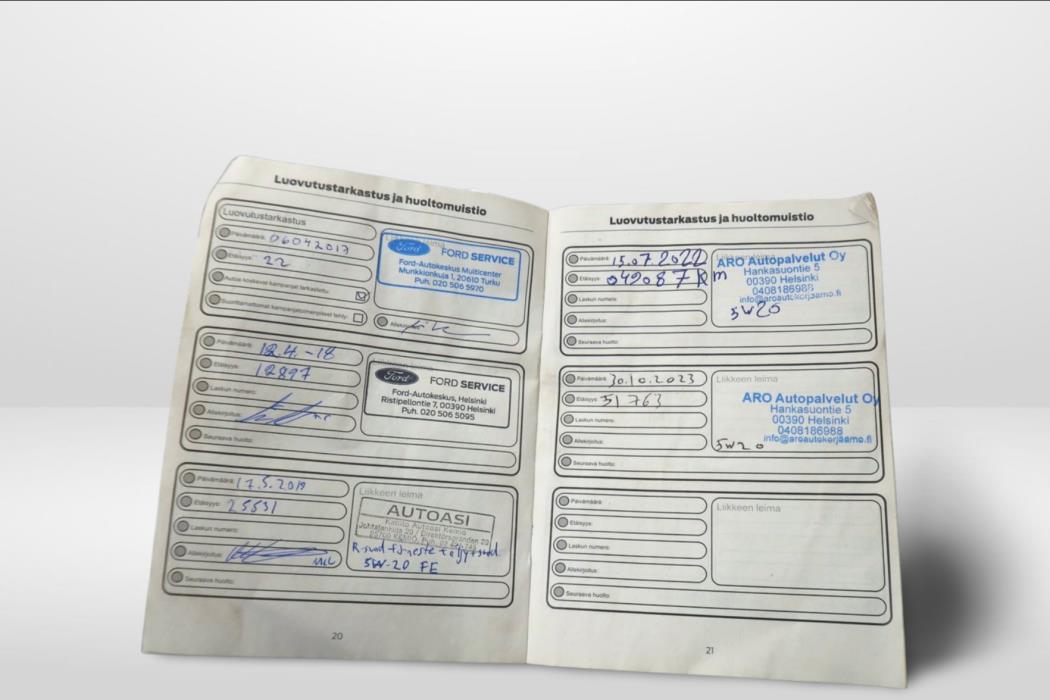 Luovutustarkastus ja huoltomuistio
Luovutustarkastus
Päivämäärä: 06042017
Etäisyys: 22
Autoa koskevat kampanjat tarkastettu:
Suorittamattomat kampanjatoimenpiteet tehty:
Ford FORD SERVICE
Ford-Autokeskus Multicenter
Munkkionkuja 1, 20610 Turku
Puh. 020 506 5970
Allekirjoitus:
Päivämäärä: 12.4.-18
Etäisyys: 12897
Laskun numero:
Allekirjoitus:
Seuraava huolto:
Ford FORD SERVICE
Ford-Autokeskus, Helsinki
Ristipellontie 7, 00390 Helsinki
Puh. 020 506 5095
Päivämäärä: 17.5.2019
Etäisyys: 25531
Laskun numero:
Allekirjoitus:
Seuraava huolto:
Liikkeen leima
AUTOASI
5W-20 FE
20
Luovutustarkastus ja huoltomuistio
Päivämäärä: 15.07.2022
Etäisyys: 042087 Km
Laskun numero:
Allekirjoitus:
Seuraava huolto:
ARO Autopalvelut Oy
Hankasuontie 5
00390 Helsinki
0408186988
info@aroautokorjaamo.fi
5W20
Päivämäärä: 30.10.2023
Etäisyys: 51763
Laskun numero:
Allekirjoitus:
Seuraava huolto:
Liikkeen leima
ARO Autopalvelut Oy
Hankasuontie 5
00390 Helsinki
0408186988
info@aroautokorjaamo.fi
5W20
Päivämäärä:
Etäisyys:
Laskun numero:
Allekirjoitus:
Seuraava huolto:
Liikkeen leima
21